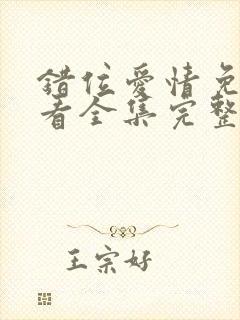 错位爱情免
看全集完整
王宗好